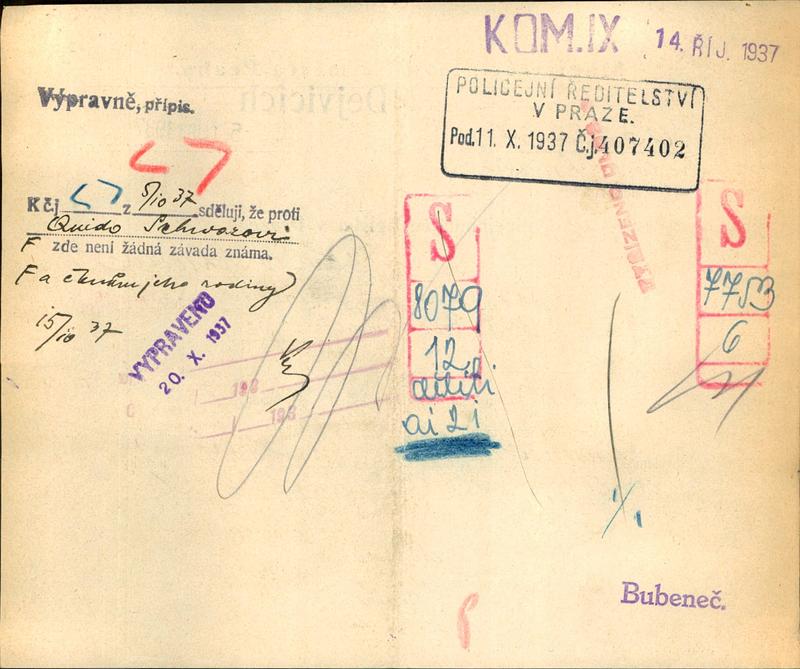 KOM.IX 14. ŘÍJ. 1937
POLICEJNÍ ŘEDITELSTVÍ
V PRAZE.
Pod. 11. X. 1937 Č.j. 407402
Výpravně, přípis.
K čj. z 5/10 37 sděluji, že proti
Quido Schwarzovi
F zde není žádná závada známa.
F a členům jeho rodiny
15/10 37
VYPRAVENO
20. X. 1937
193
193
S
8079
12
S
7753
6
Bubeneč.